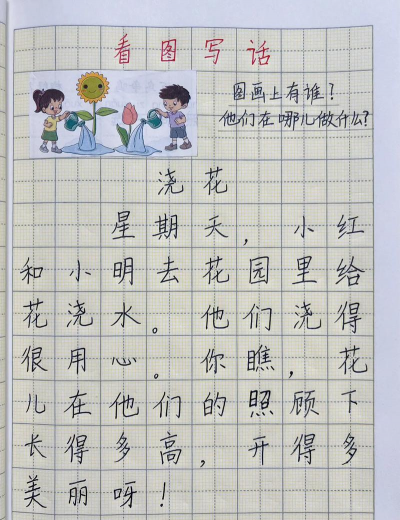 看图写话
图画上有谁？
他们在哪儿做什么？
浇花
星期天，小红
和小明去花园里给
花浇水。他们浇得
很用心。你瞧，花
儿在他们的照顾下
长得多高，开得多
美丽呀！